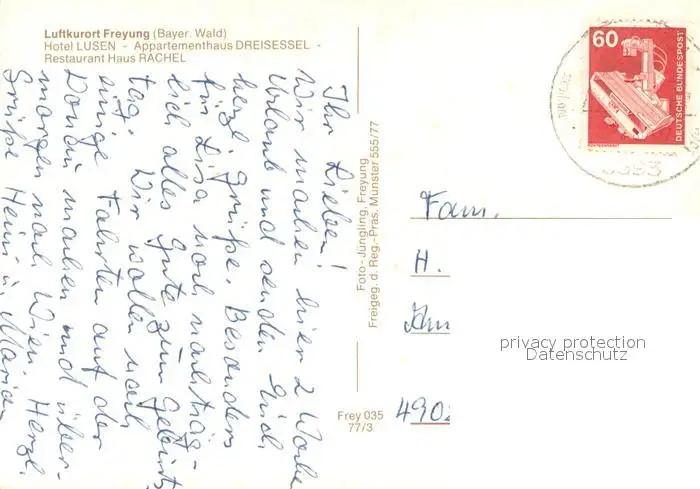 Luftkurort Freyung (Bayer. Wald)
Hotel LUSEN - Appartementhaus DREISESSEL -
Restaurant Haus RACHEL
Ihr Lieben!
Wir machen hier 2 Woche
Urlaub und senden Euch
herzl. Grüße. Besonders
für Lisa noch nachträg-
lich alles Gute zum Geburts
tag. Wir wollen noch
einige Fahrten auf der
Donau machen und über-
morgen nach Wien. Herzl.
Grüße Heini u. Marian
Foto-Jüngling, Freyung
Freigeg. d. Reg.-Präs. Münster 555/77
Frey 035
77/3
60
DEUTSCHE BUNDESPOST
RÖNTGENGERÄT
8393
Fam.
H.
490
privacy protection
Datenschutz